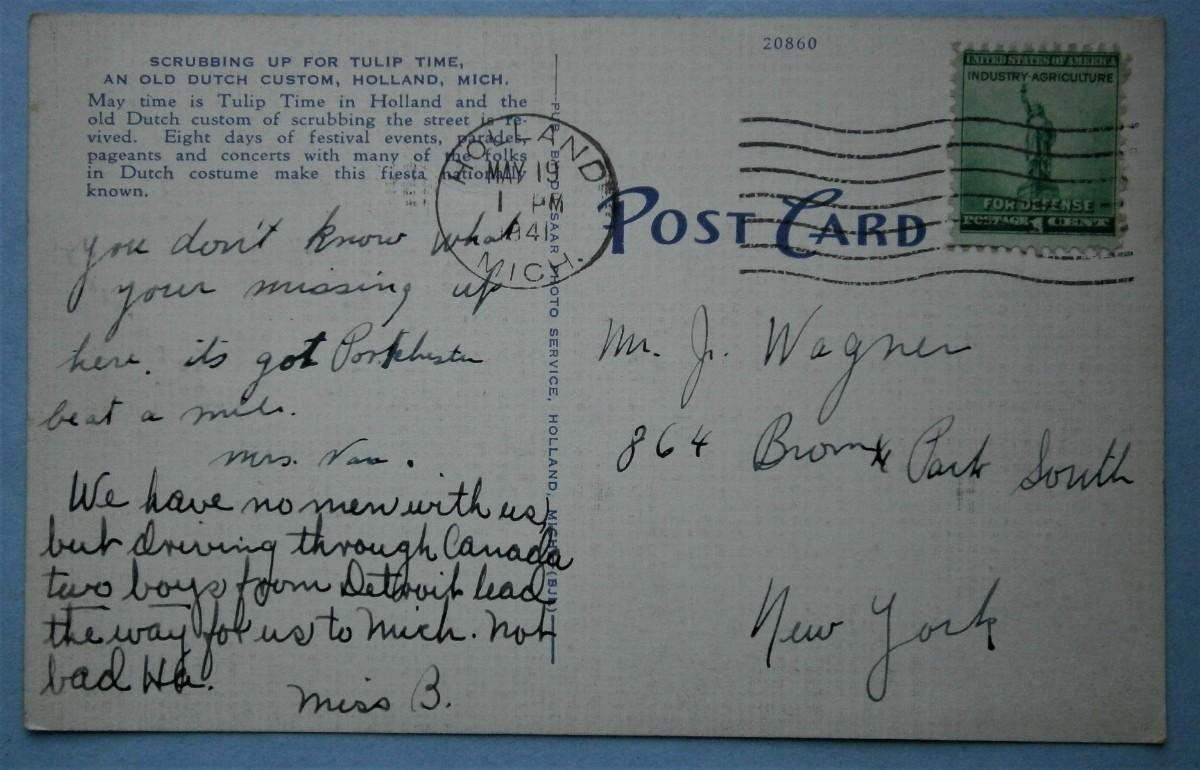 SCRUBBING UP FOR TULIP TIME,
AN OLD DUTCH CUSTOM, HOLLAND, MICH.
May time is Tulip Time in Holland and the
old Dutch custom of scrubbing the street is re-
vived. Eight days of festival events, parades,
pageants and concerts with many of the folks
in Dutch costume make this fiesta nationally
known.
you don't know what
your missing up
here. its got Portchester
beat a mile.
Mrs.
We have no men with us,
but driving through Canada
two boys from Detroit lead
the way for us to Mich. Not
bad Ha.
Miss B.
PHOTO SERVICE, HOLLAND, MICH.
HOLLAND
MAY 19
1 PM
1941
MICH.
20860
UNITED STATES OF AMERICA
INDUSTRY·AGRICULTURE
FOR DEFENSE
POSTAGE 1 CENT
POST CARD
Mr. J. Wagner
864 Bronx Park South
New York